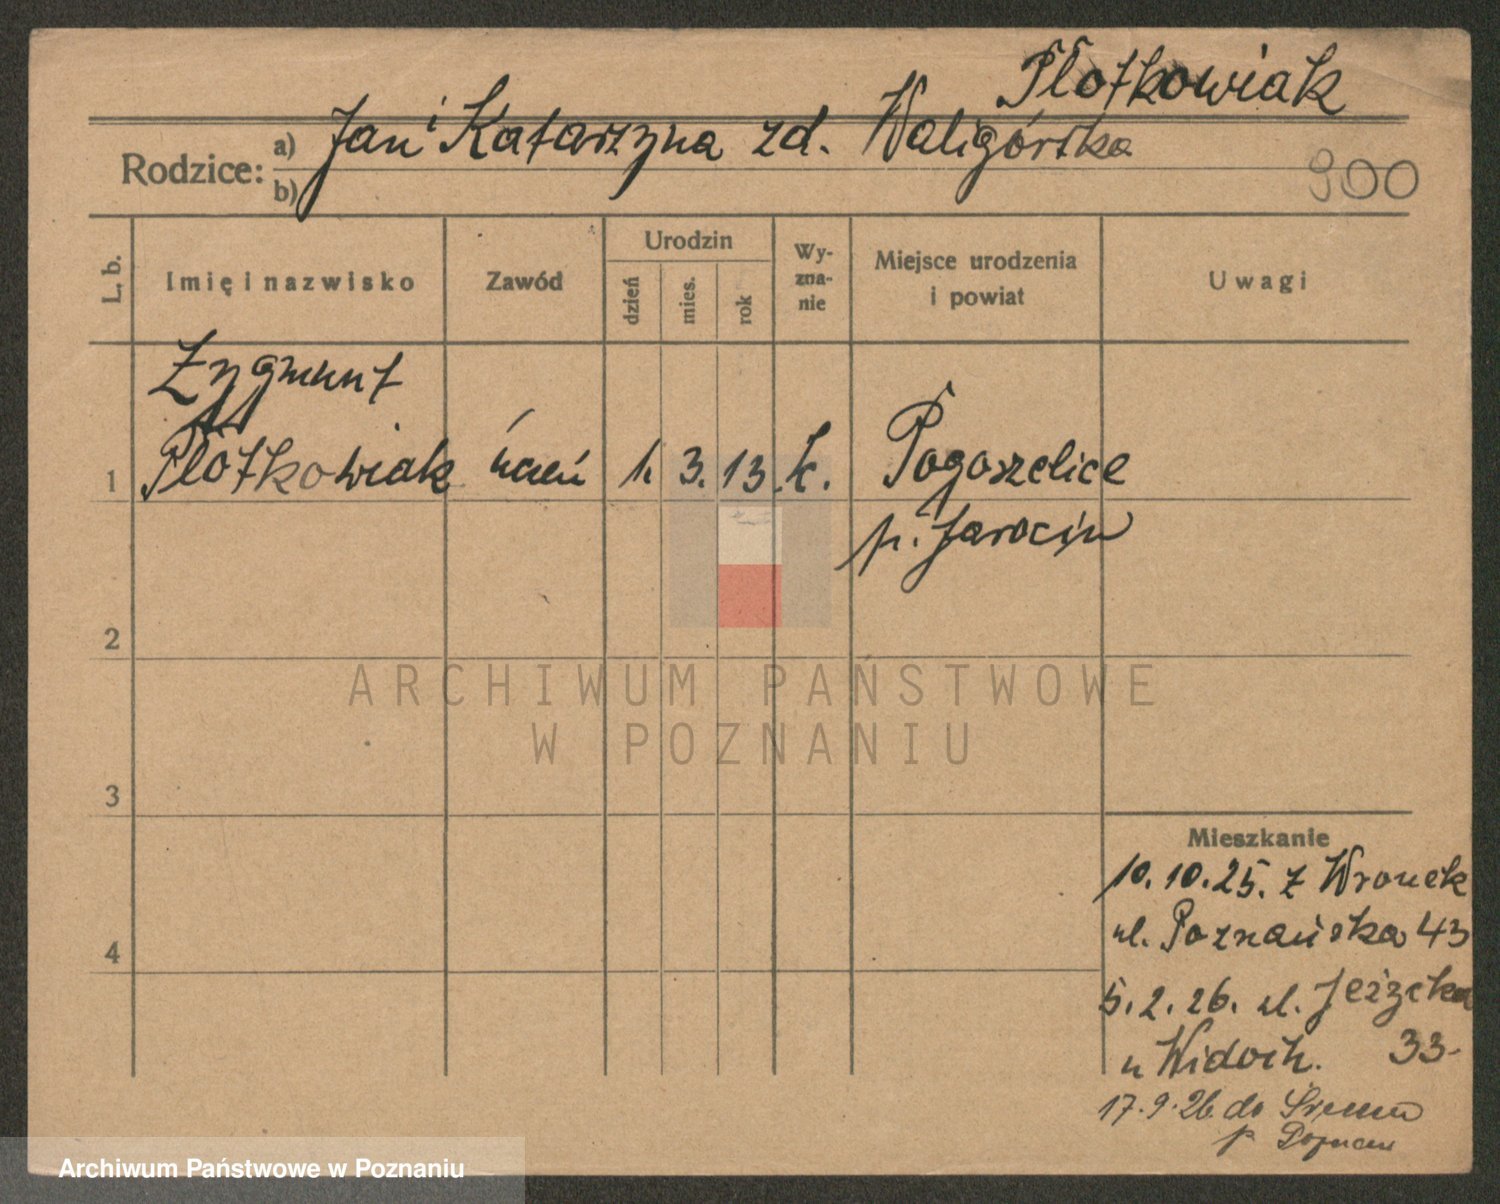 Plotkowiak
Rodzice: a) Jan i Katarzyna zd. Waligórska
b)
900
L. b. Imię i nazwisko Zawód Urodzin dzień mies. rok Wyzna-nie Miejsce urodzenia i powiat Uwagi
Zygmunt
1 Plotkowiak uczeń 1. 3. 13 k. Pogorzelice
p. Jarocin
2
ARCHIWUM PAŃSTWOWE
W POZNANIU
3
Mieszkanie
10.10.25. z Wronek
ul. Poznańska 43
4
5.2.26. ul. Jeżycka
u Widoch. 33
17.9.26 do Śremu
p. Poznań
Archiwum Państwowe w Poznaniu